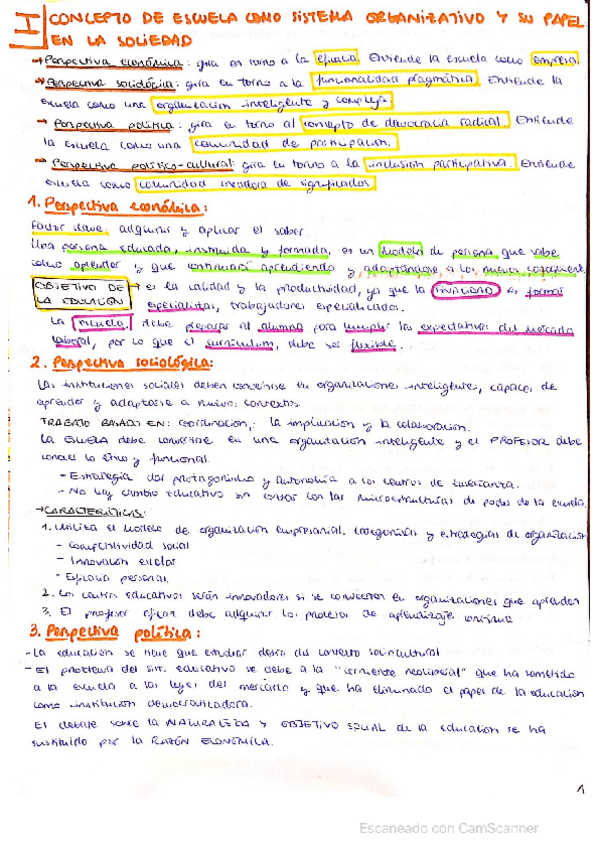 I CONCEPTO DE ESCUELA COMO SISTEMA ORGANIZATIVO Y SU PAPEL
EN LA SOCIEDAD
→ Perspectiva económica: gira en torno a la eficacia. Entiende la escuela como empresa.
→ Perspectiva sociológica: gira en torno a la funcionalidad pragmática. Entiende la
escuela como una organización inteligente y compleja.
→ Perspectiva política: gira en torno al concepto de democracia radical. Entiende
la escuela como una comunidad de participación.
→ Perspectiva político-cultural: gira en torno a la inclusión participativa. Entiende
escuela como comunidad creadora de significados
1. Perspectiva económica:
Factor clave: adquirir y aplicar el saber.
Una persona educada, instruida y formada, es un modelo de persona que sabe
cómo aprender y que continuará aprendiendo y adaptándose a los nuevos
OBJETIVO DE
LA EDUCACIÓN → es la calidad y la productividad, ya que la finalidad es formar
especialistas, trabajadores especializados.
La escuela, debe preparar al alumno para cumplir las expectativas del mercado
laboral, por lo que el currículum, debe ser flexible.
2. Perspectiva sociológica:
Las instituciones sociales deben convertirse en organizaciones inteligentes, capaces de
aprender y adaptarse a nuevos contextos.
TRABAJO BASADO EN: coordinación, la implicación y la colaboración.
La ESCUELA debe convertirse en una organización inteligente y el PROFESOR debe
lo ético y funcional.
- Estrategia dar protagonismo y autonomía a los centros de enseñanza.
- No hay cambio educativo sin contar con las microestructuras de poder de la escuela.
→ CARACTERÍSTICAS:
1. Utiliza el modelo de organización empresarial. Categorías y estrategias de organización
- Competitividad social
- Innovación escolar
- Eficacia personal.
2. Los centros educativos serán innovadores si se convierten en organizaciones que aprenden
3. El profesor eficaz debe adquirir los procesos de aprendizaje continuo
3. Perspectiva política:
- La educación se tiene que estudiar dentro del contexto sociocultural
- El problema del sist. educativo se debe a la "corriente neoliberal" que ha sometido
a la escuela a las leyes del mercado y que ha eliminado el papel de la educación
como institución democratizadora.
El debate sobre la NATURALEZA Y OBJETIVO SOCIAL de la educación se ha
sustituido por la RAZÓN ECONÓMICA.
1
Escaneado con CamScanner